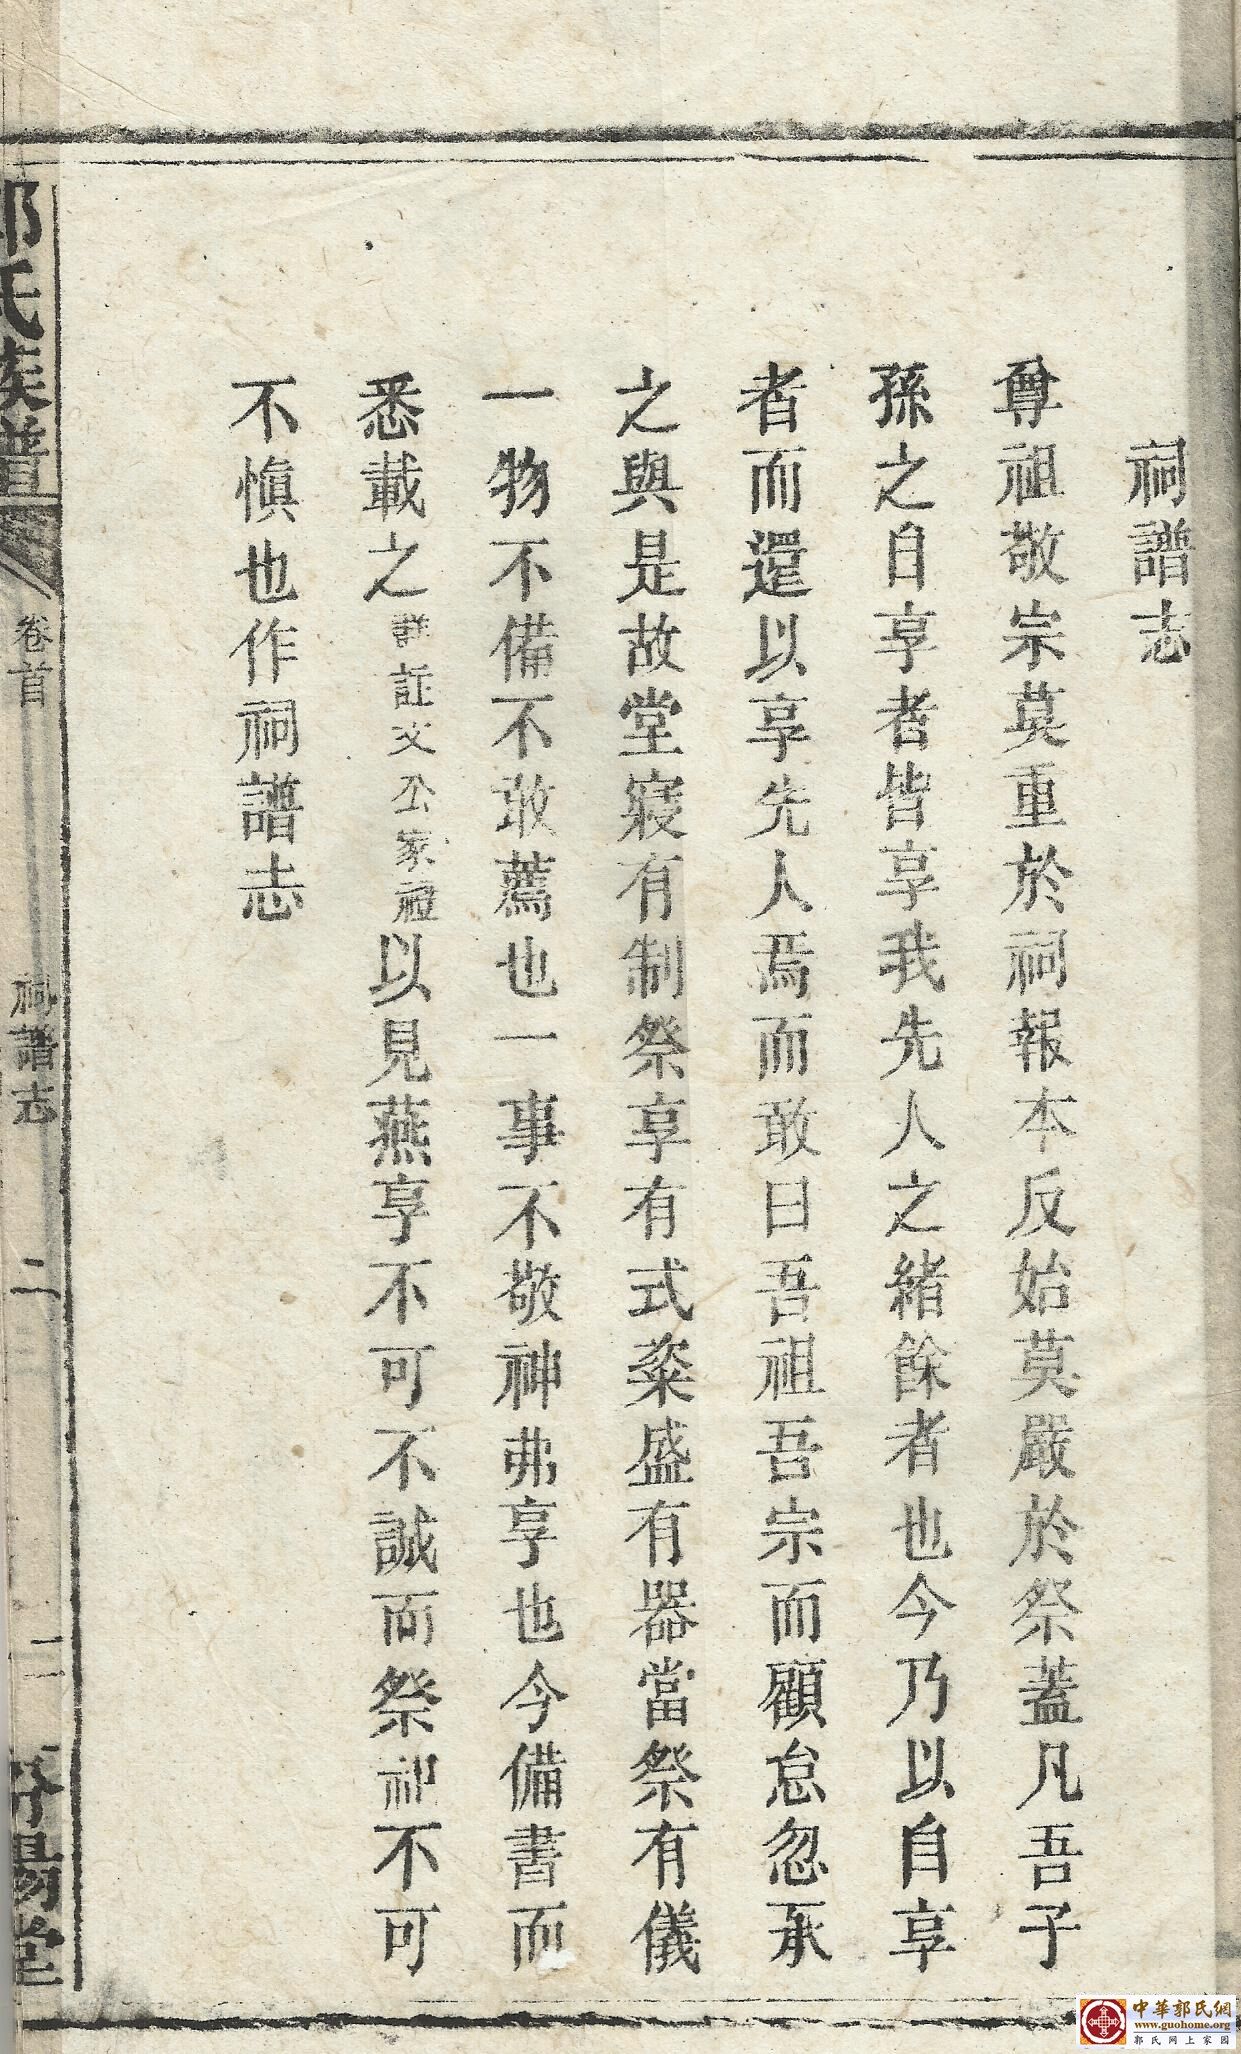 祠譜志
尊祖敬宗莫重於祠報本反始莫嚴於祭蓋凡吾子
孫之自享者皆享我先人之緒餘者也今乃以自享
者而還以享先人焉而敢曰吾祖吾宗而顧怠忽承
之與是故堂寢有制祭享有式粢盛有器當祭有儀
一物不備不敢薦也一事不敬神弗享也今備書而
悉載之詳註文公家禮以見燕享不可不誠而祭祀不可
不慎也作祠譜志
郭氏族譜 卷首 祠譜志 二 二 汾陽堂
中華郭氏網
www.guohome.org
郭氏网上家园